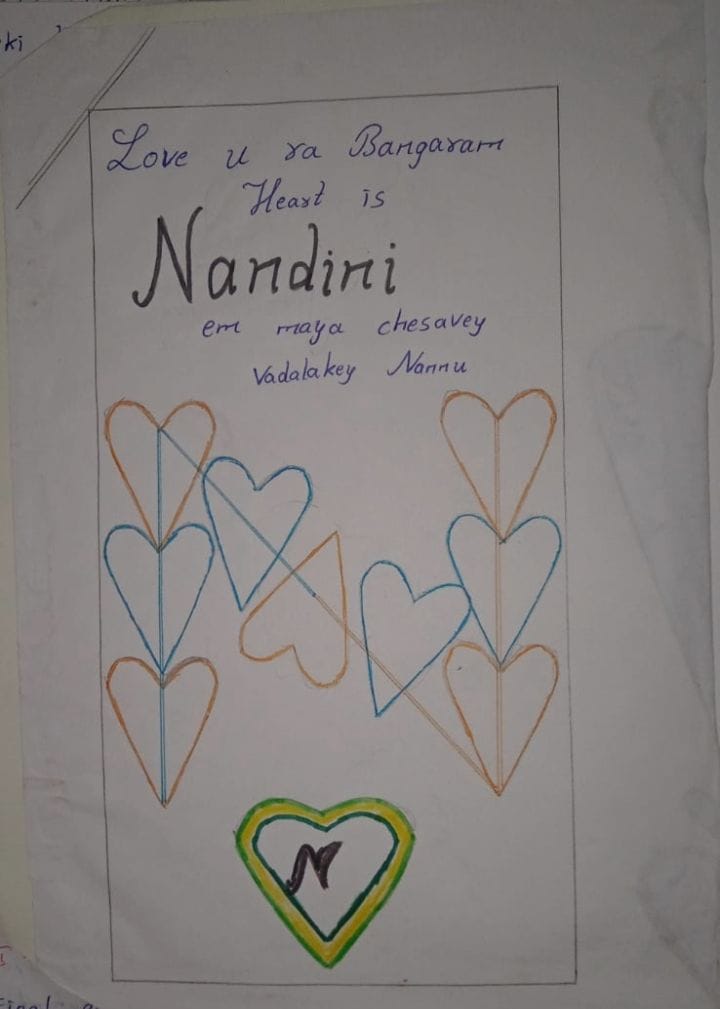 ki
Love u ra Bangaram
Heart is
Nandini
em maya chesavey
Vadalakey Nannu
N